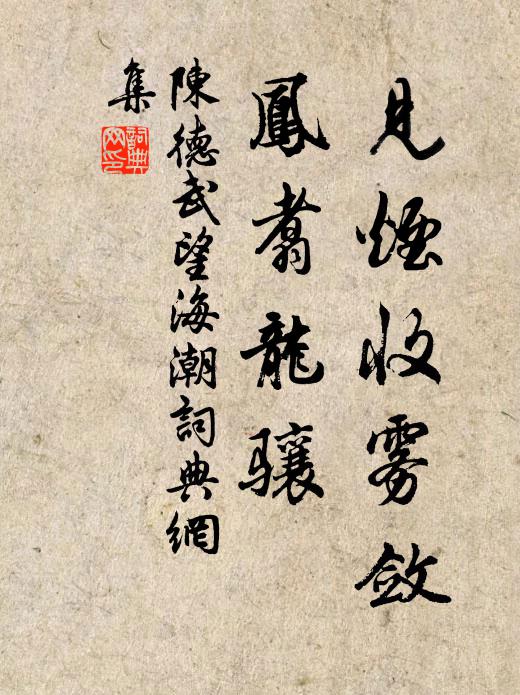 見煙收雾斂
鳳翥龍驤
陳德武望海潮詞典網
集
詞典网印